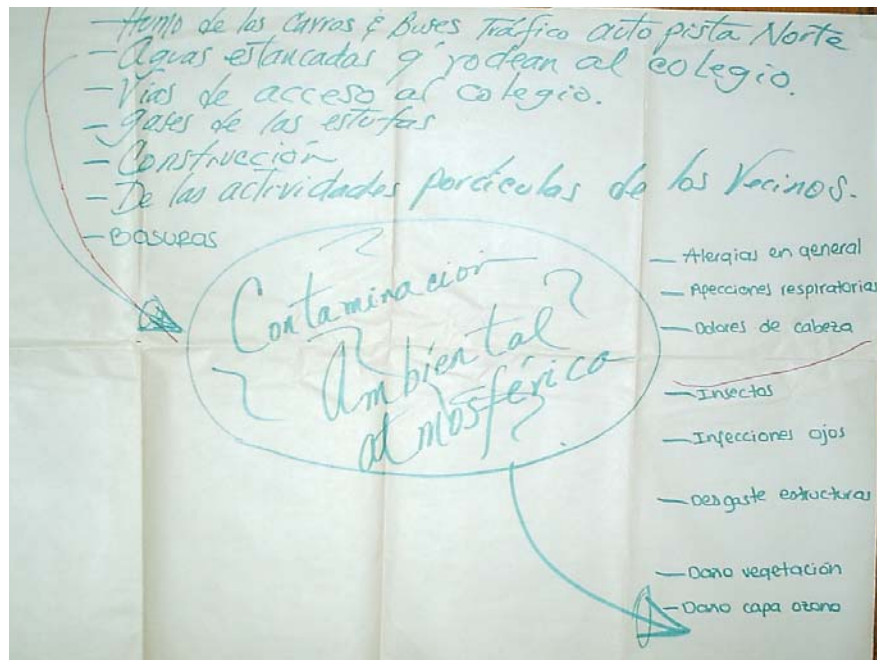 - Humo de los Carros & Buses Tráfico autopista Norte
- Aguas estancadas q' rodean al colegio.
- Vías de acceso al colegio.
- gases de las estufas
- Construcción
- De las actividades particulas de los Vecinos.
- BASURAS
Contaminación
Ambiental
atmosférica
- Alergias en general
- Afecciones respiratorias
- Dolores de cabeza
- Insectos
- Infecciones ojos
- Desgaste estructuras
- Daño vegetación
- Daño capa ozono